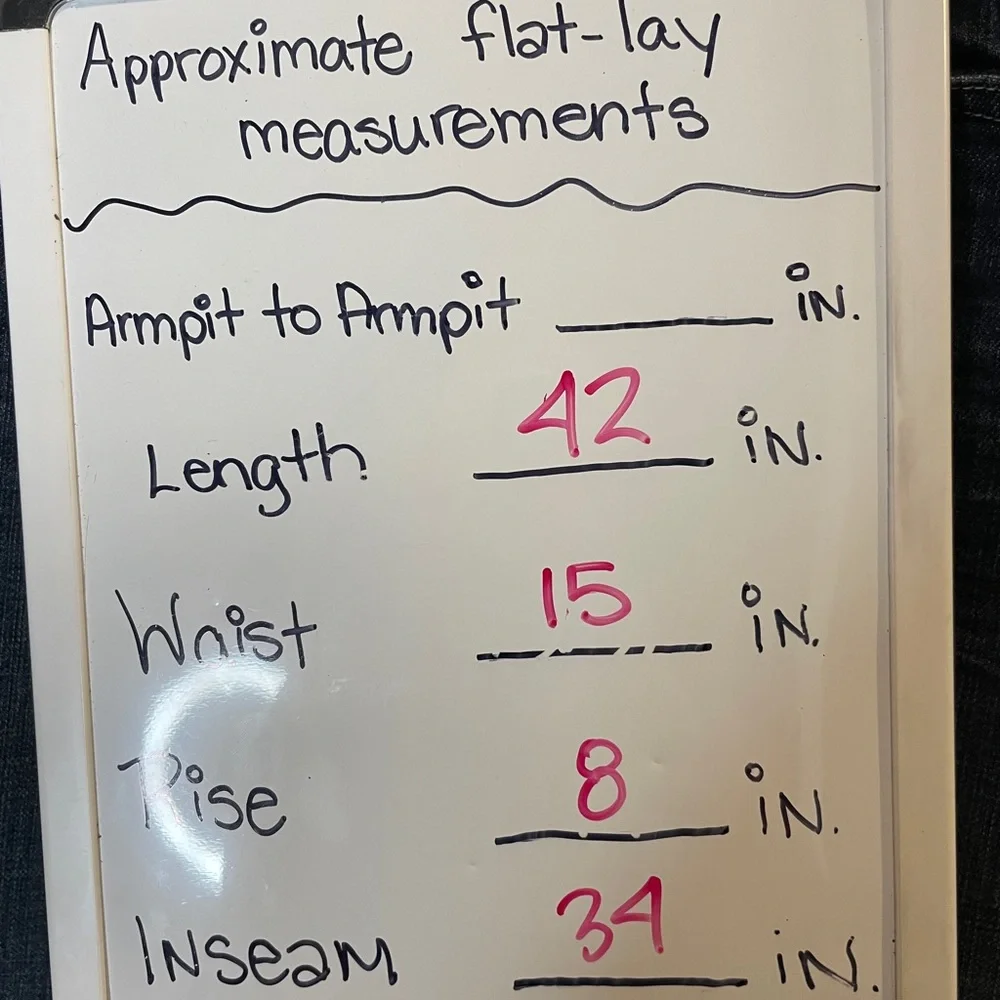 Approximate flat-lay
measurements
Armpit to Armpit ______ iN.
Length 42 iN.
Waist 15 iN.
Rise 8 iN.
INseam 34 iN.